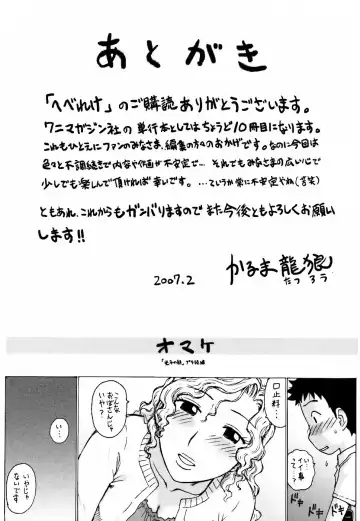 あとがき
「へべれけ」のご購読ありがとうございます。
ワニマガジン社の単行本としてはちょうど10冊目になります。
これもひとえにファンのみなさま、編集の方々のおかげです。なのに今回は
色々と不調続きで内容や作画が不安定で… それでもみなさまの広い心で
少しでも楽しんで頂ければ幸いです。…ていうか常に不安定やね(苦笑)
ともあれ、これからもガンバりますのでまた今後ともよろしくお願い
します!!
2007.2
かるま龍狼
たつろう
オマケ
口止料…
いっ
イイ事
って?
ドキ
ドキ
こんな
おばさんじゃ
いや?
い…
いやじゃ
ないです